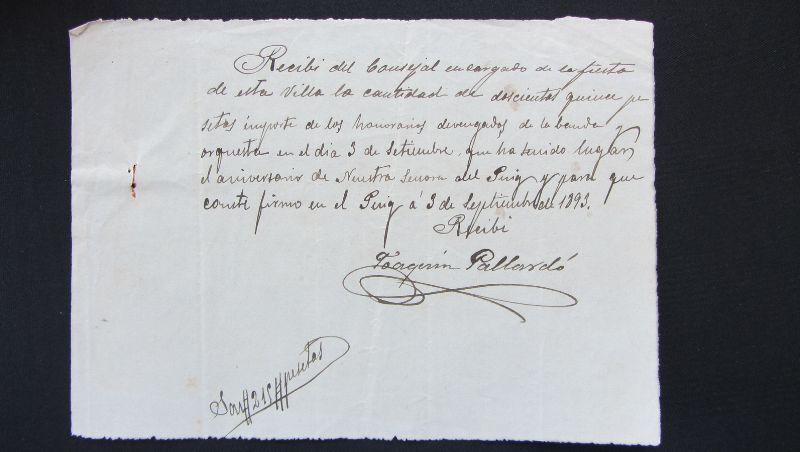 Recibi del Consejal encargado de la fiesta
de esta Villa la cantidad de doscientas quince pe
setas importe de los honorarios devengados de la banda
orquesta en el dia 3 de Setiembre, que ha tenido lugar
el aniversario de Nuestra Señora del Puig y para que
conste firmo en el Puig á 3 de Septiembre de 1893.
Recibi
Joaquin Pallardó
Son # 215 # pesetas